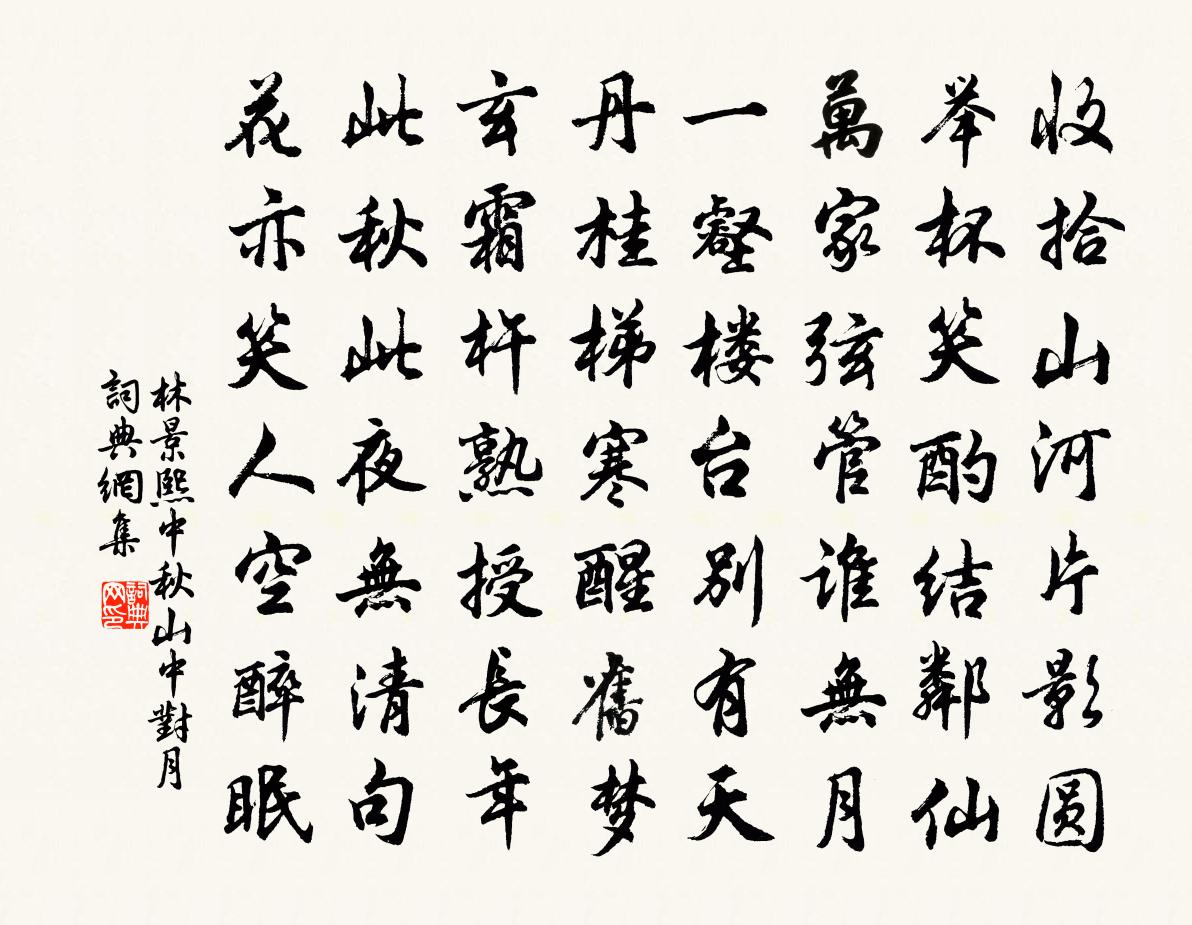 收拾山河片影圆
举杯笑酌结鄰仙
萬家弦管谁無月
一壑楼台别有天
丹桂梯寒醒舊梦
玄霜杵熟授長年
此秋此夜無清句
花亦笑人空醉眠
林景熙中秋山中對月
詞典網集
詞典网印